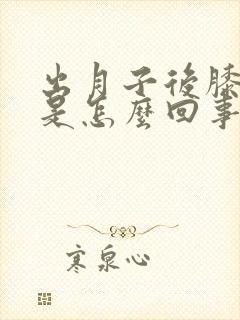 出月子後膝
是怎麼回事
寒泉心